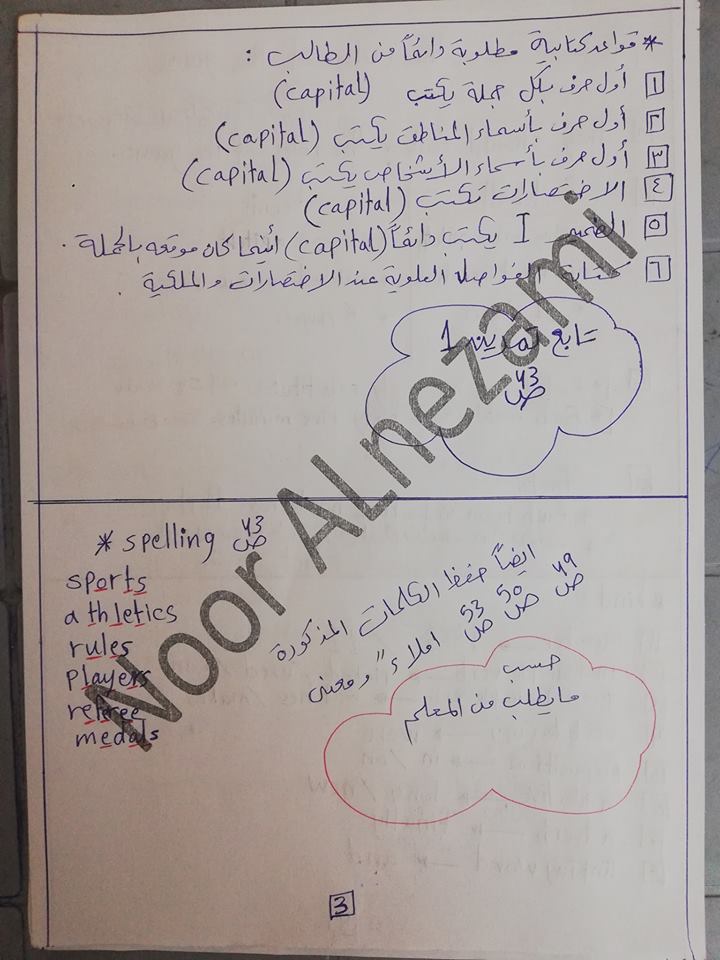 * قواعد كتابية مطلوبة دائماً من الطالب :
١ أول حرف بكل جملة يكتب (capital)
٢ أول حرف بأسماء المناطق يكتب (capital)
٣ أول حرف بأسماء الأشخاص يكتب (capital)
٤ الاختصارات تكتب (capital)
٥ الضمير I يكتب دائماً (capital) أينما كان موقعه بالجملة .
٦ كتابة الفواصل العلوية عند الاختصارات والملكية
تابع تمرين 1
ص 43
Noor ALnezami
* spelling ص 43
sports
athletics
rules
players
referee
medals
ايضاً حفظ الكلمات المذكورة
ص 49 ص 50 ص 53 املاءً ومعنى
حسب
ما يطلب من المعلم
3